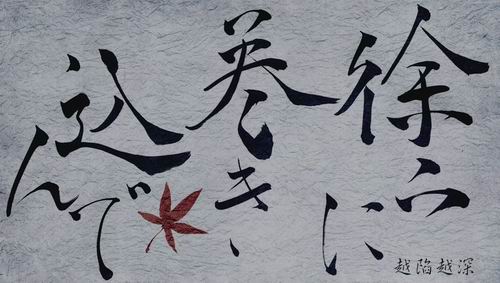 徐々に
巻き
込んで
越陷越深